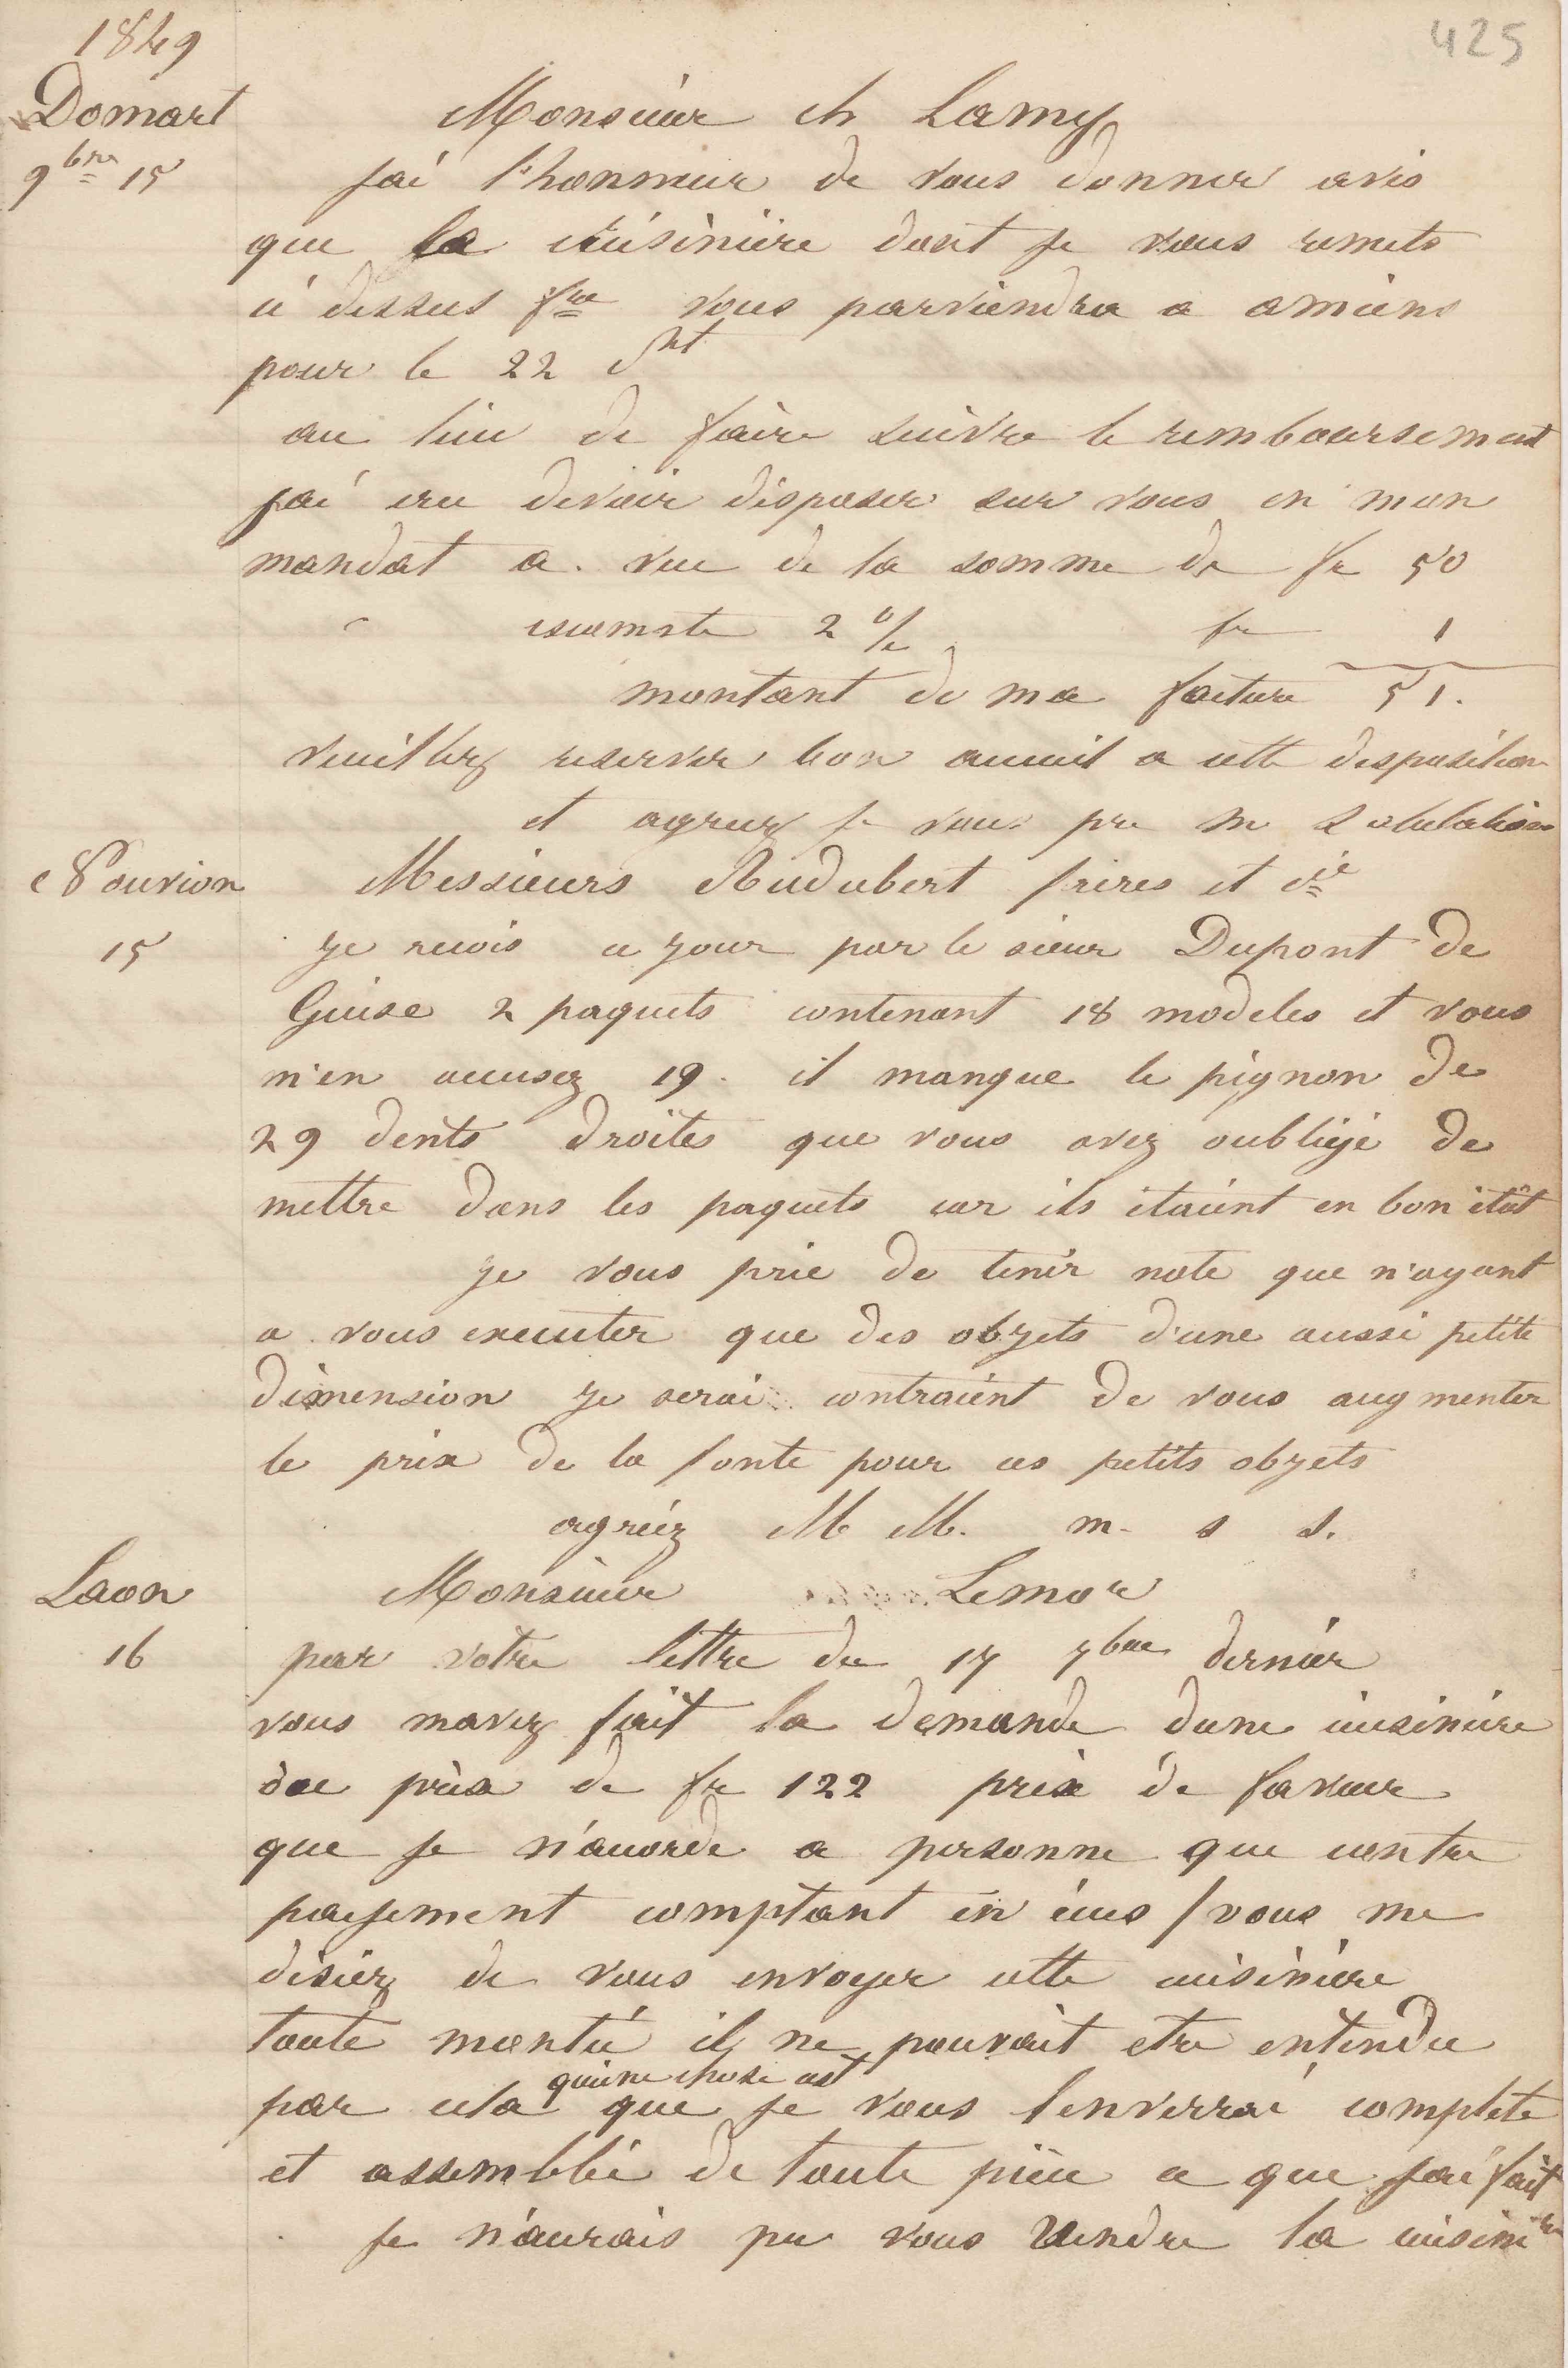 425
1849
Domart
9bre 15
Monsieur ch Lamy
jai l'honneur de vous donner avis
que la cuisinière dont je vous remets
ci dessus fre vous parviendra a amiens
pour le 22 ct
au lieu de faire suivre le remboursement
jai cru devoir disposer sur vous en mon
mandat a vue de la somme de fr 50
escompte 2 % fr 1
montant de ma facture 51.
veuillez reserver bon acceuil a cette disposition
et agreez je vous prie m salutations
Nouvion
15
Messieurs frères et cie
je recois ce jour par le sieur Dupont de
Guise 2 paquets contenant 18 modeles et vous
m'en accusez 19. il manque le pignon de
29 dents droites que vous avez oubliyé de
mettre dans les paquets car ils étaient en bon état
je vous prie de tenir note que n'ayant
a vous executer que des objets d'une aussi petite
dimension je serai contraient de vous augmenter
le prix de la fonte pour ces petits objets
agréez M M. m. s s.
Laon
16
Monsieur Lemor
par votre lettre du 17 7bre dernier
vous mavez fait la demande dune cuisinière
au prix de fr 122 prix de faveur
que je n'accorde a personne que contre
payement comptant en écus / vous me
disiez de vous envoyer cette cuisinière
toute montée il ne pouvait etre entendu
par cela qu'une chose cest que je vous lenverrai complete
et assemblée de toute pièce ce que jai fait
je n'aurais pu vous vendre la cuisinière